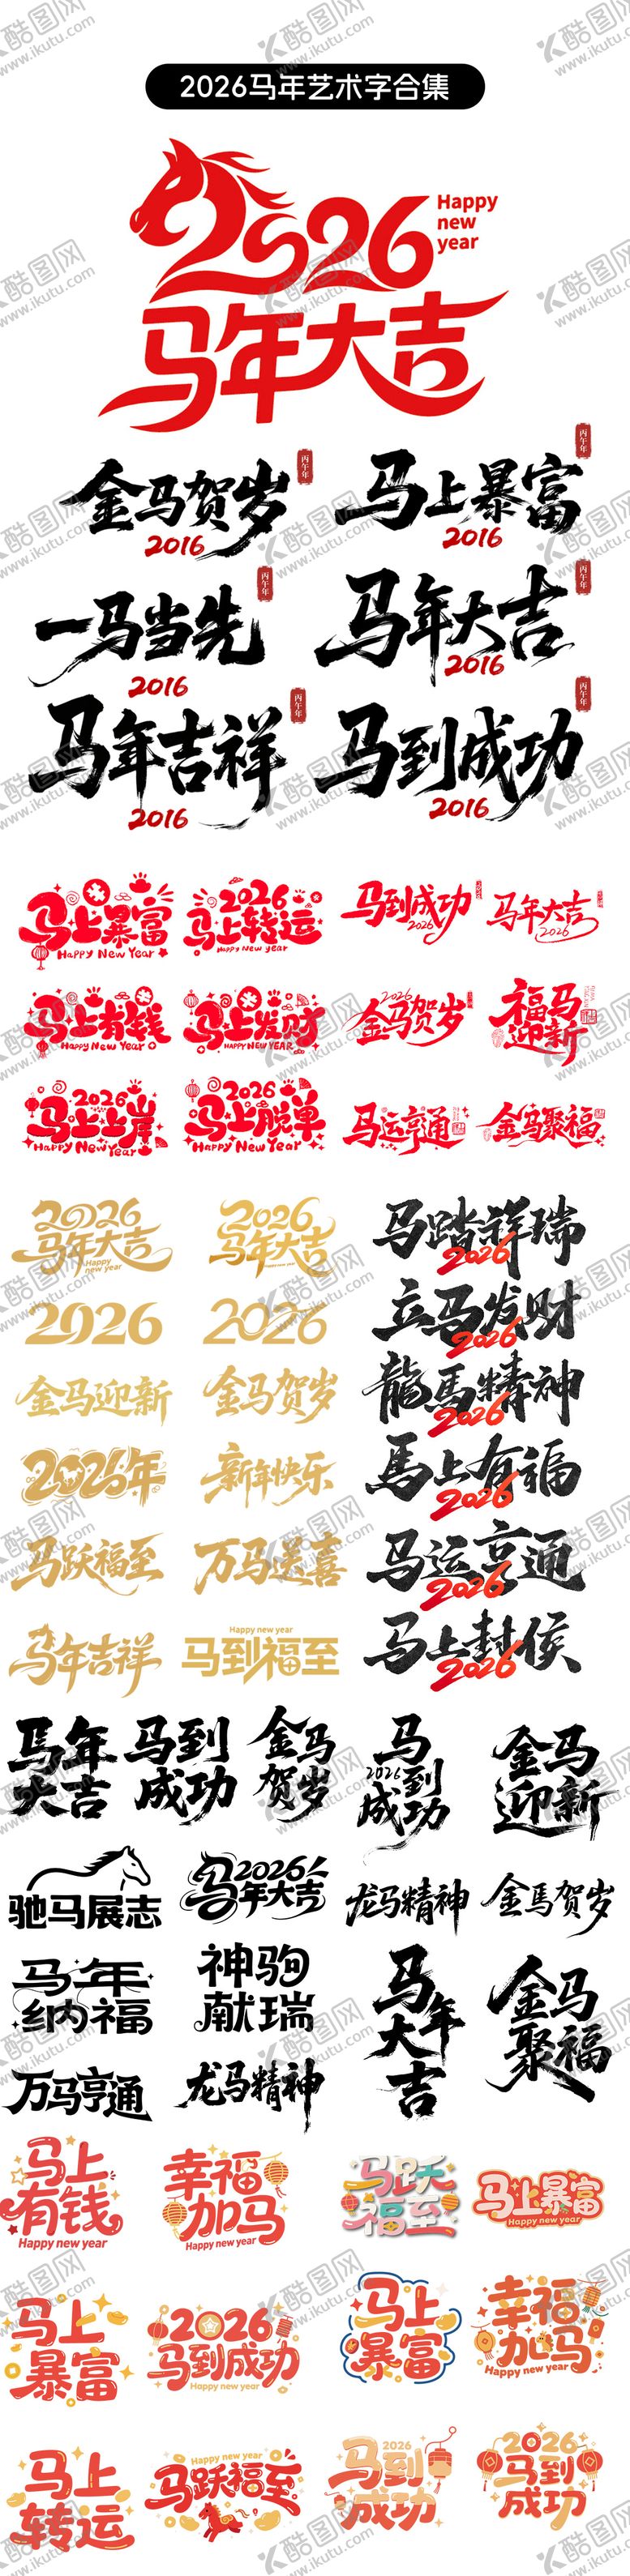 2026马年艺术字合集
2026
Happy
new
year
马年大吉
丙午年
丙午年
金马贺岁
马上暴富
2016
2016
丙午年
丙午年
一马当先
马年大吉
2016
2016
丙午年
丙午年
马年吉祥
马到成功
2016
2016
马上暴富
Happy New Year
2026
马上转运
Happy New year
马到成功
2026
马年大吉
2026
马上有钱
Happy New Year
马上发财
HAPPY NEW YEAR
2026
金马贺岁
福马
迎新
2026
马上上岸
Happy New Year
2026
马上脱单
Happy New Year
马运亨通
金马聚福
2026
马年大吉
Happy
new year
2026
马年大吉
马踏祥瑞
2026
2026
2026
立马发财
2026
金马迎新
金马贺岁
龍馬精神
2026
2026年
新年快乐
馬上有福
2026
马跃福至
万马送喜
马运亨通
2026
马年吉祥
Happy new year
马到福至
马上封侯
2026
馬年
大吉
马到
成功
金马
贺岁
马
2026到
成功
金马
迎新
驰马展志
2026
马年大吉
龙马精神
金馬贺岁
马年
纳福
神驹
献瑞
马年
大吉
金马
聚福
万马亨通
龙马精神
马上
有钱
Happy new year
幸福
加马
Happy new year
马跃
福至
马上暴富
Happy new year
马上
暴富
2026
马到成功
Happy new year
马上
暴富
幸福
加马
Happy new year
马上
转运
Happy new year
马跃福至
2026
马到
成功
2026
马到
成功
酷图网
www.ikutu.com